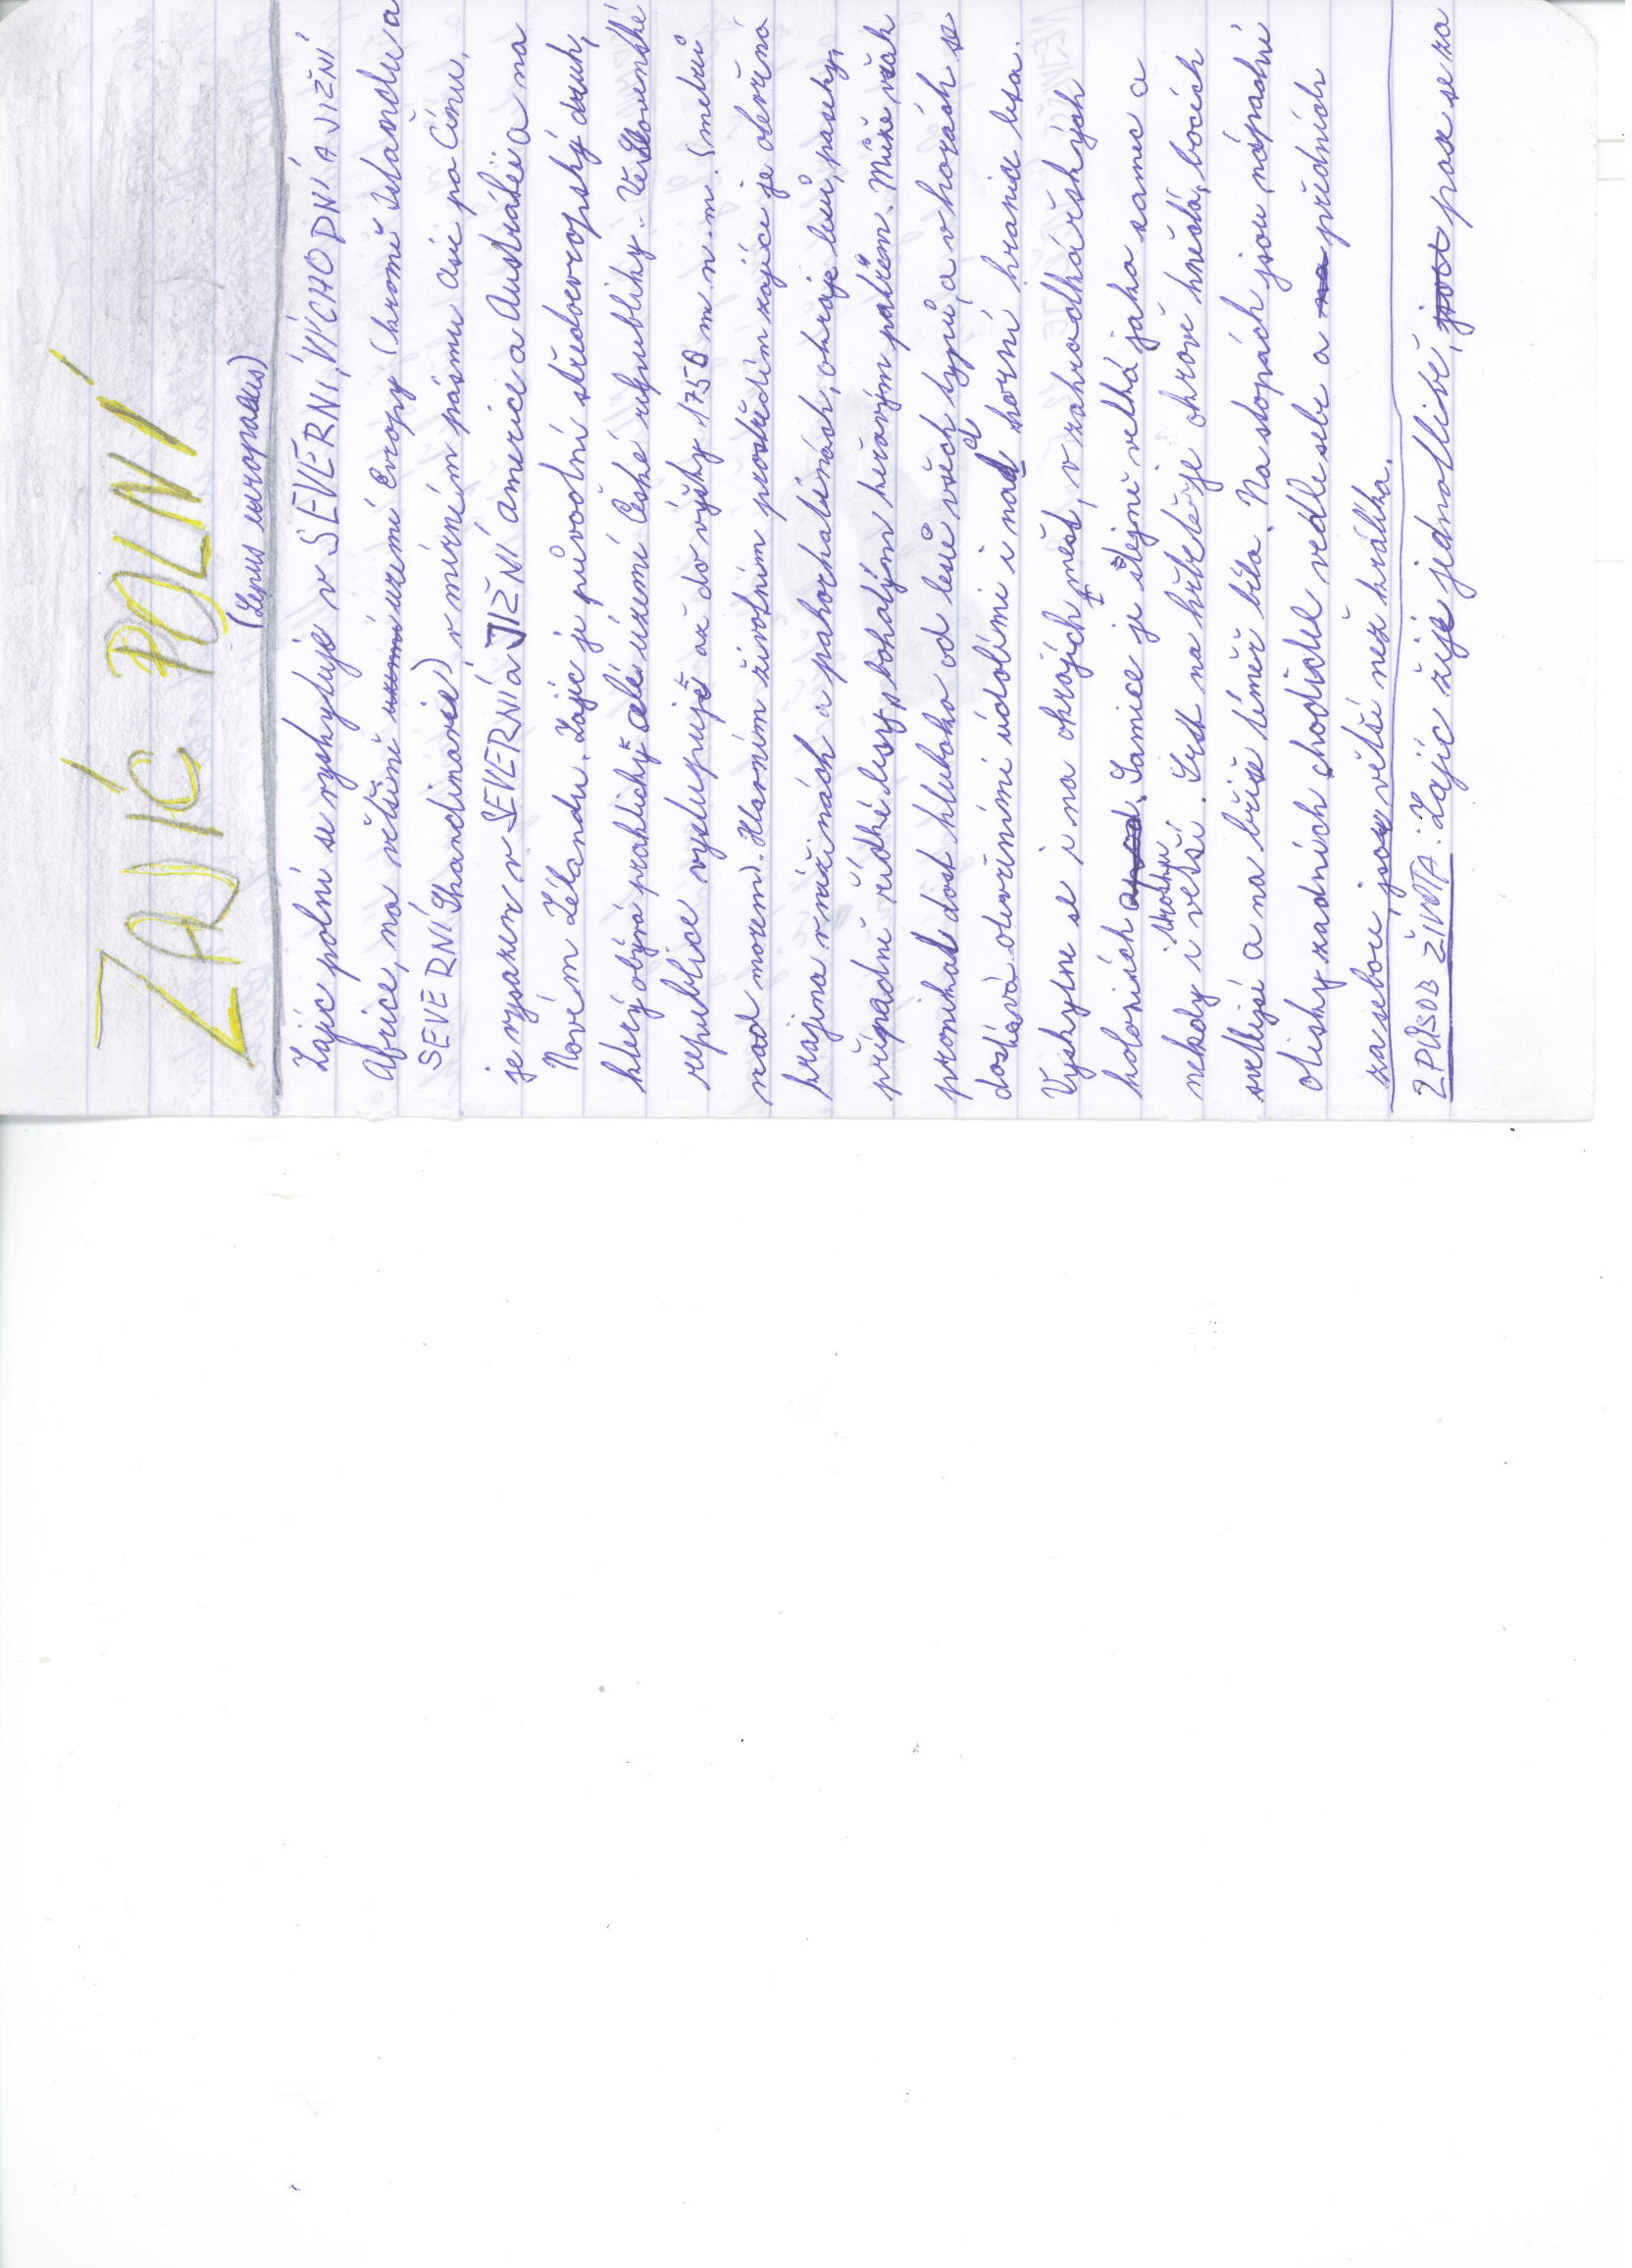 ZAJÍC POLNÍ
(Lepus europaeus)
Zajíc polní se vyskytuje v SEVERNÍ, VÍCHODNÍ A JIŽNÍ
Africe, na většině území Evropy (kromě Islandu a
SEVERNÍ Skandinavie) v mírním pásmu Asie po Čínu,
je vysazen v SEVERNÍ a JIŽNÍ americe a Austrálii a na
Novém Zélandu. Zajíc je původní středoevropský druh,
který obývá prakticky celé území České republiky. Ve Slovenské
republice vystupuje až do výšky 1750 m n. m. (metrů
nad mořem). Hlavním životním prostředím zajíce je otevřená
krajina v nížinách a pahorkatinách, okraje lesů, paseky,
případně řídké lesy s bohatým keřovým patrem. Může však
pronikat dost hluboko od lesů všech typů, a v horách se
dostává otevřenými údolími i nad horní hranice lesa.
Vyskytne se i na okrajích měst, v zahradkářských
koloniích. Samice je stejně velká jako samec a
nekdy i trochu vetší. Srst na hřbetě je okrově hnědá, bocích
světlejší a na břiše téměř bíla. Na stopách jsou nápadné
otisky zadních chodidel vedle sebe a předních
za sebou jsou větší než králíka.
2 PŮSOB ŽIVOTA: Zajíc žije jednotlivě, pase se za